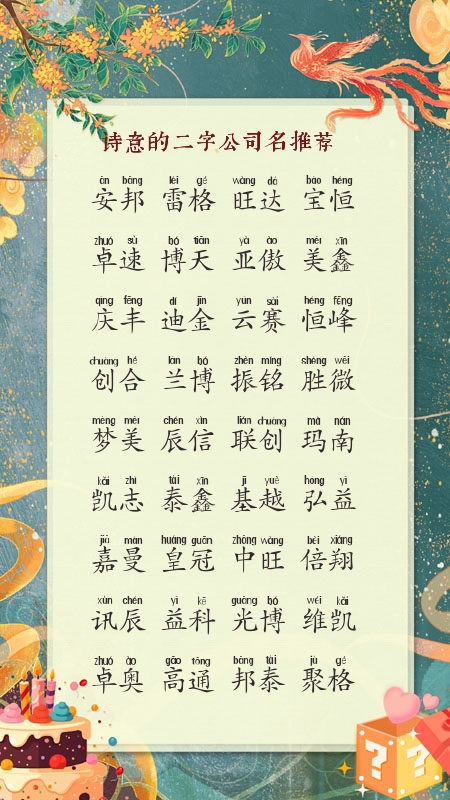 诗意的二字公司名推荐
ān bāng léi gé wàng dá bǎo héng
安邦 雷格 旺达 宝恒
zhuó sù bó tiān yà ào měi xīn
卓速 博天 亚傲 美鑫
qìng fēng dí jīn yún sài héng fēng
庆丰 迪金 云赛 恒峰
chuàng hé lán bó zhèn míng shèng wēi
创合 兰博 振铭 胜微
mèng měi chén xìn lián chuàng mǎ nán
梦美 辰信 联创 玛南
kǎi zhì tài xīn jī yuè hóng yì
凯志 泰鑫 基越 弘益
jiā màn huáng guān zhōng wàng bèi xiáng
嘉曼 皇冠 中旺 倍翔
xùn chén yì kē guāng bó wéi kǎi
讯辰 益科 光博 维凯
zhuó ào gāo tōng bāng tài jù gé
卓奥 高通 邦泰 聚格
? ?